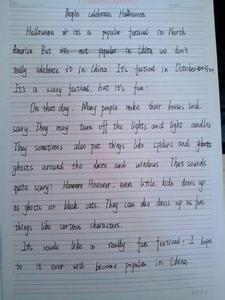 People celebrate Halloween
Halloween is a popular festival in North
America. But it's not popular in China we don't
really celebrate it in China. It's festival in October
It's a scary festival, but it's fun.
On that day. Many people make their houses look
scary. They may turn off the lights and light candles
They sometimes also put things like spiders and ghosts
ghosts around the doors and windows. That sounds
quite scary! However However, even little kids dress up
as ghosts or black cats. They can also dress up as fun
things like cartoon characters.
It's sounds like a really fun festival! I hope
to it ever will become popular in China.